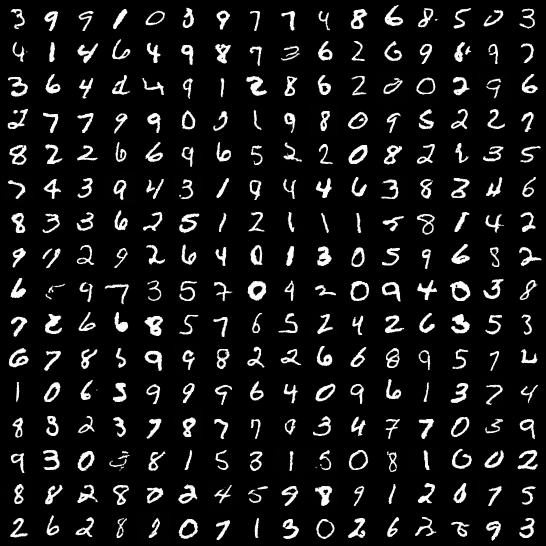 3 9 9 1 0 3 9 7 7 4 8 6 8 5 0 3
4 1 4 6 4 9 8 7 3 6 2 6 9 8 9 7
3 6 4 2 4 9 1 2 8 6 2 0 0 2 9 6
2 7 7 9 9 0 3 1 9 8 0 9 5 2 2 7
8 2 2 6 6 9 6 5 2 2 0 8 2 1 3 5
7 4 3 9 4 3 1 9 4 4 6 3 8 3 4 6
8 3 3 6 2 5 1 2 1 1 1 5 8 1 4 2
9 2 9 2 6 4 0 1 3 0 5 9 6 8 2
6 5 9 7 3 5 7 0 4 2 0 9 4 0 3 8
7 2 6 6 8 5 7 6 5 2 4 2 6 3 5 3
6 7 8 5 9 9 8 2 2 6 6 8 9 5 7 2
1 0 6 5 9 9 9 6 4 0 9 6 1 3 7 4
8 3 2 3 7 8 7 7 0 3 4 7 7 0 3 9
9 3 0 3 8 1 5 3 1 5 0 8 1 0 0 2
8 8 2 8 0 2 4 5 9 8 9 1 2 0 7 5
2 6 2 8 1 0 7 1 3 0 2 6 2 5 9 3